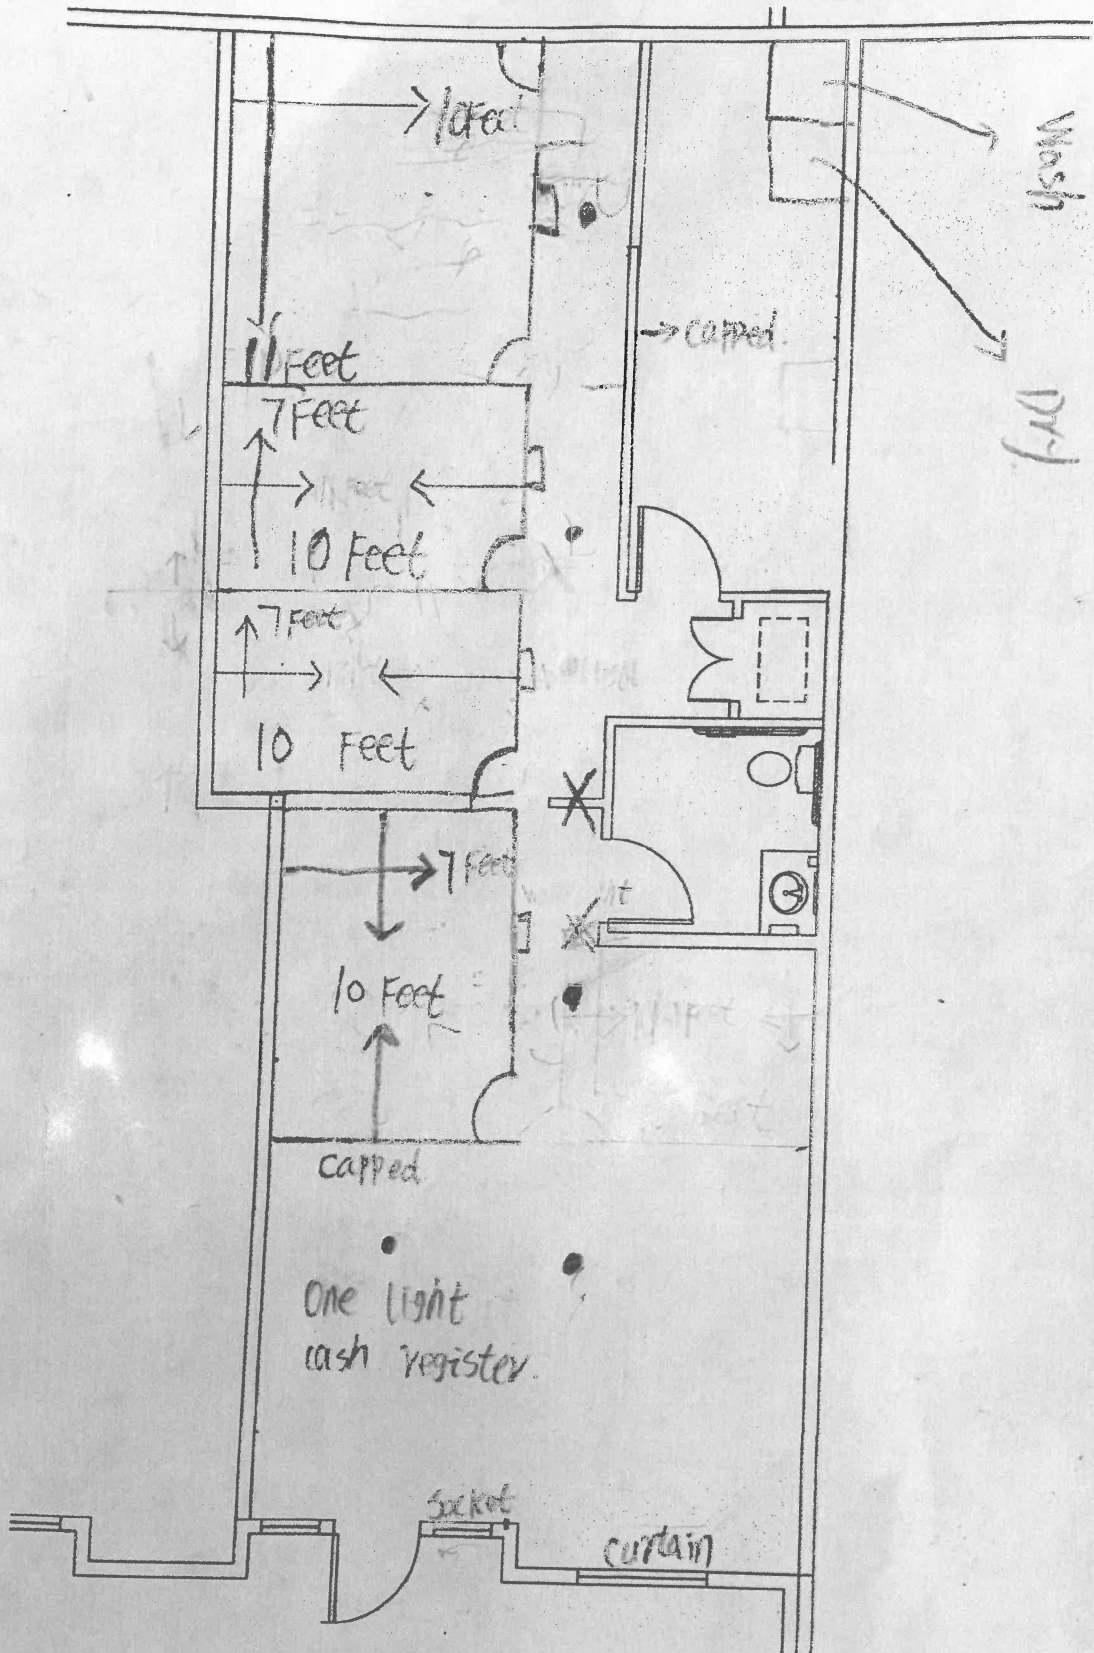 10Feet
Wash
11Feet
→ capped.
Dry.
7Feet
10 Feet
7Feet
10 Feet
7 Feet
10 Feet
capped
One light
cash register.
Socket
curtain